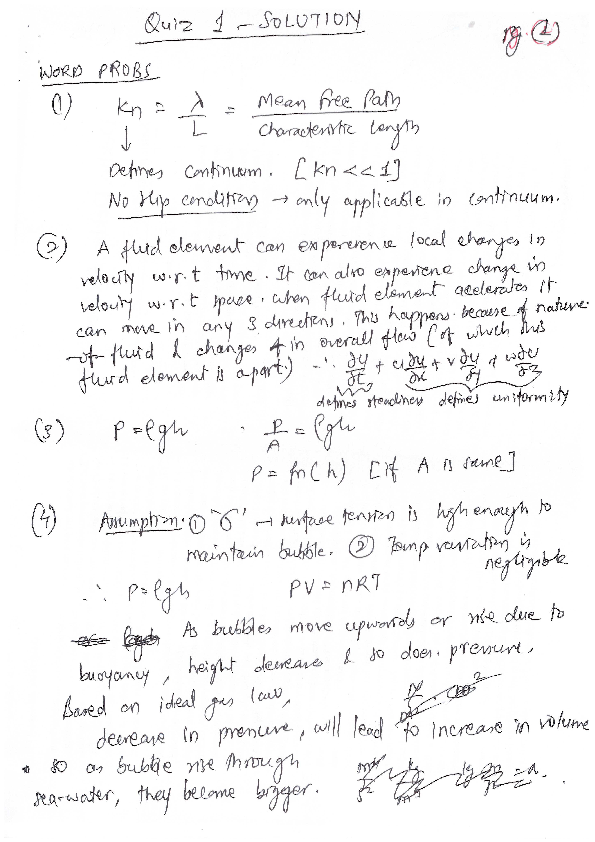 Quiz 1 - SOLUTION
pg. (1)
WORD PROBS
(1) Kn = λ/L = Mean Free Path / Characteristic length
↓
Defines Continuum. [Kn << 1]
No slip condition → only applicable in continuum.
(2) A fluid element can experience local changes in
velocity w.r.t time. It can also experience change in
velocity w.r.t space. when fluid element accelerates it
can move in any 3 directions. This happens because of nature
of fluid & changes in overall flow (of which this
fluid element is a part.) ∴ ∂u/∂t + u ∂u/∂x + v ∂u/∂y + w ∂u/∂z
defines steadiness defines uniformity
(3) P = ρgh ∴ P/A = ρgh
P = fn(h) [if A is same]
(4) Assumption: ① "σ" → surface tension is high enough to
maintain bubble. ② Temp variation is
negligible
∴ P = ρgh PV = nRT
As bubbles move upwards or rise due to
buoyancy, height decreases & so does pressure.
Based on ideal gas law,
decrease in pressure, will lead to increase in volume
so as bubble rise through
sea-water, they become bigger.